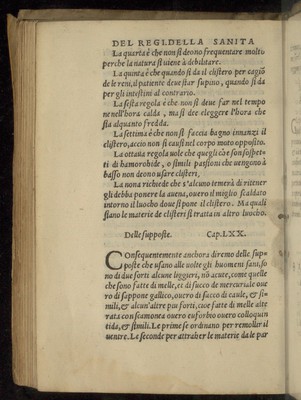 DEL REGI. DELLA SANITA
La quarta è che non si deono frequentare molto
perche la natura si uiene à debilitare.
La quinta è che quando si da il clistero per cagiō
de le reni, il patiente deue star supino, quando si da
per gli intestini al contrario.
La sesta regola è che non si deue far nel tempo
ne nell'hora calda, ma si dee eleggere l'hora che
sia alquanto fredda.
La settima è che non si faccia bagno innanzi il
clistero, accio non si causi nel corpo moto opposito.
La ottaua regola uole che quegli che son sospet-
ti di hamorohide, o simili passioni che uengono à
basso non deono usare clisteri,
La nona richiede che s'alcuno temerà di ritener
gli debba ponere la auena, ouero il miglio scaldato
intorno il luocho doue si pone il clistero. Ma quali
siano le materie de clisteri si tratta in altro luocho.
Delle supposte. Cap. LXX.
COnsequentemente anchora diremo delle sup-
poste che usano alle uolte gli huomeni sani, so
no di due sorti alcune leggieri, nō acute, come quelle
che sono fatte di melle, et di succo de mercuriale oue
ro di sappone gallico, ouero di succo di caule, & si-
mili, & alcun'altre piu forti, cioè fatte di melle alte
rata con scamonea ouero euforbio ouero colloquin
tida, & simili. Le prime se ordinano per remollir il
uentre. Le seconde per attraher le materie da le par